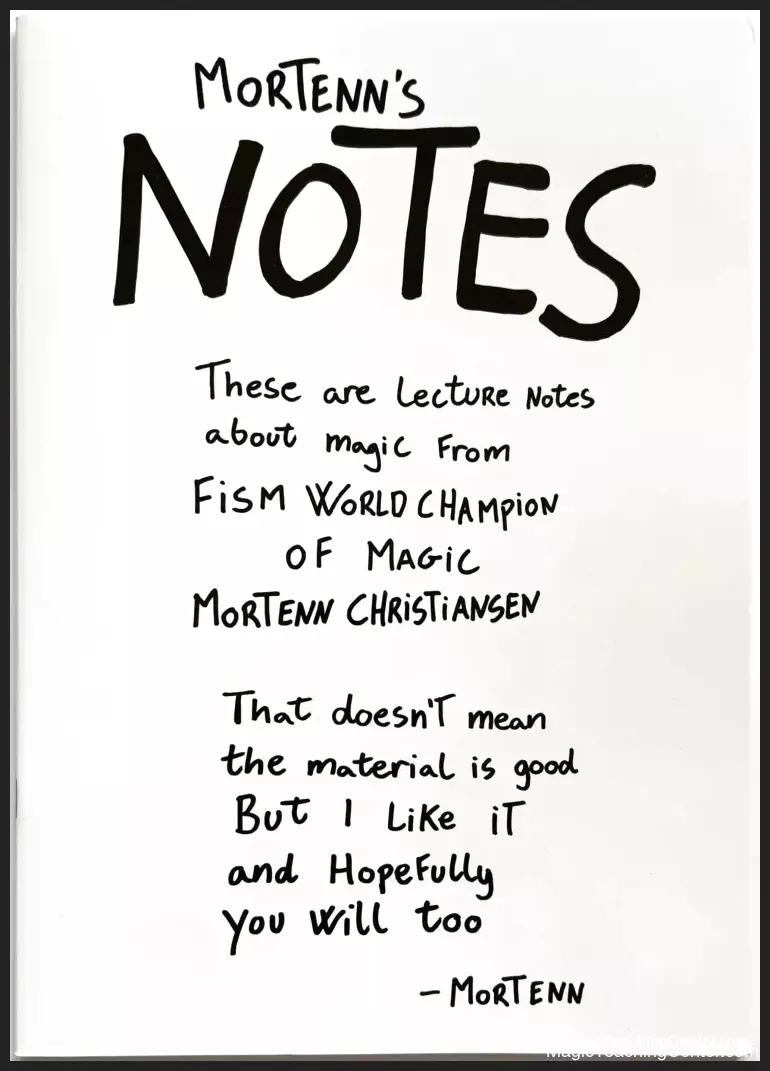 MORTENN'S
NOTES
These are Lecture Notes
about magic From
FiSM WORLD CHAMPiON
OF MAGiC
MORTENN CHRiSTiANSEN
That doesn't mean
the material is good
But I Like iT
and HopeFully
you will too
– MORTENN
MagicTeachingCenter.com